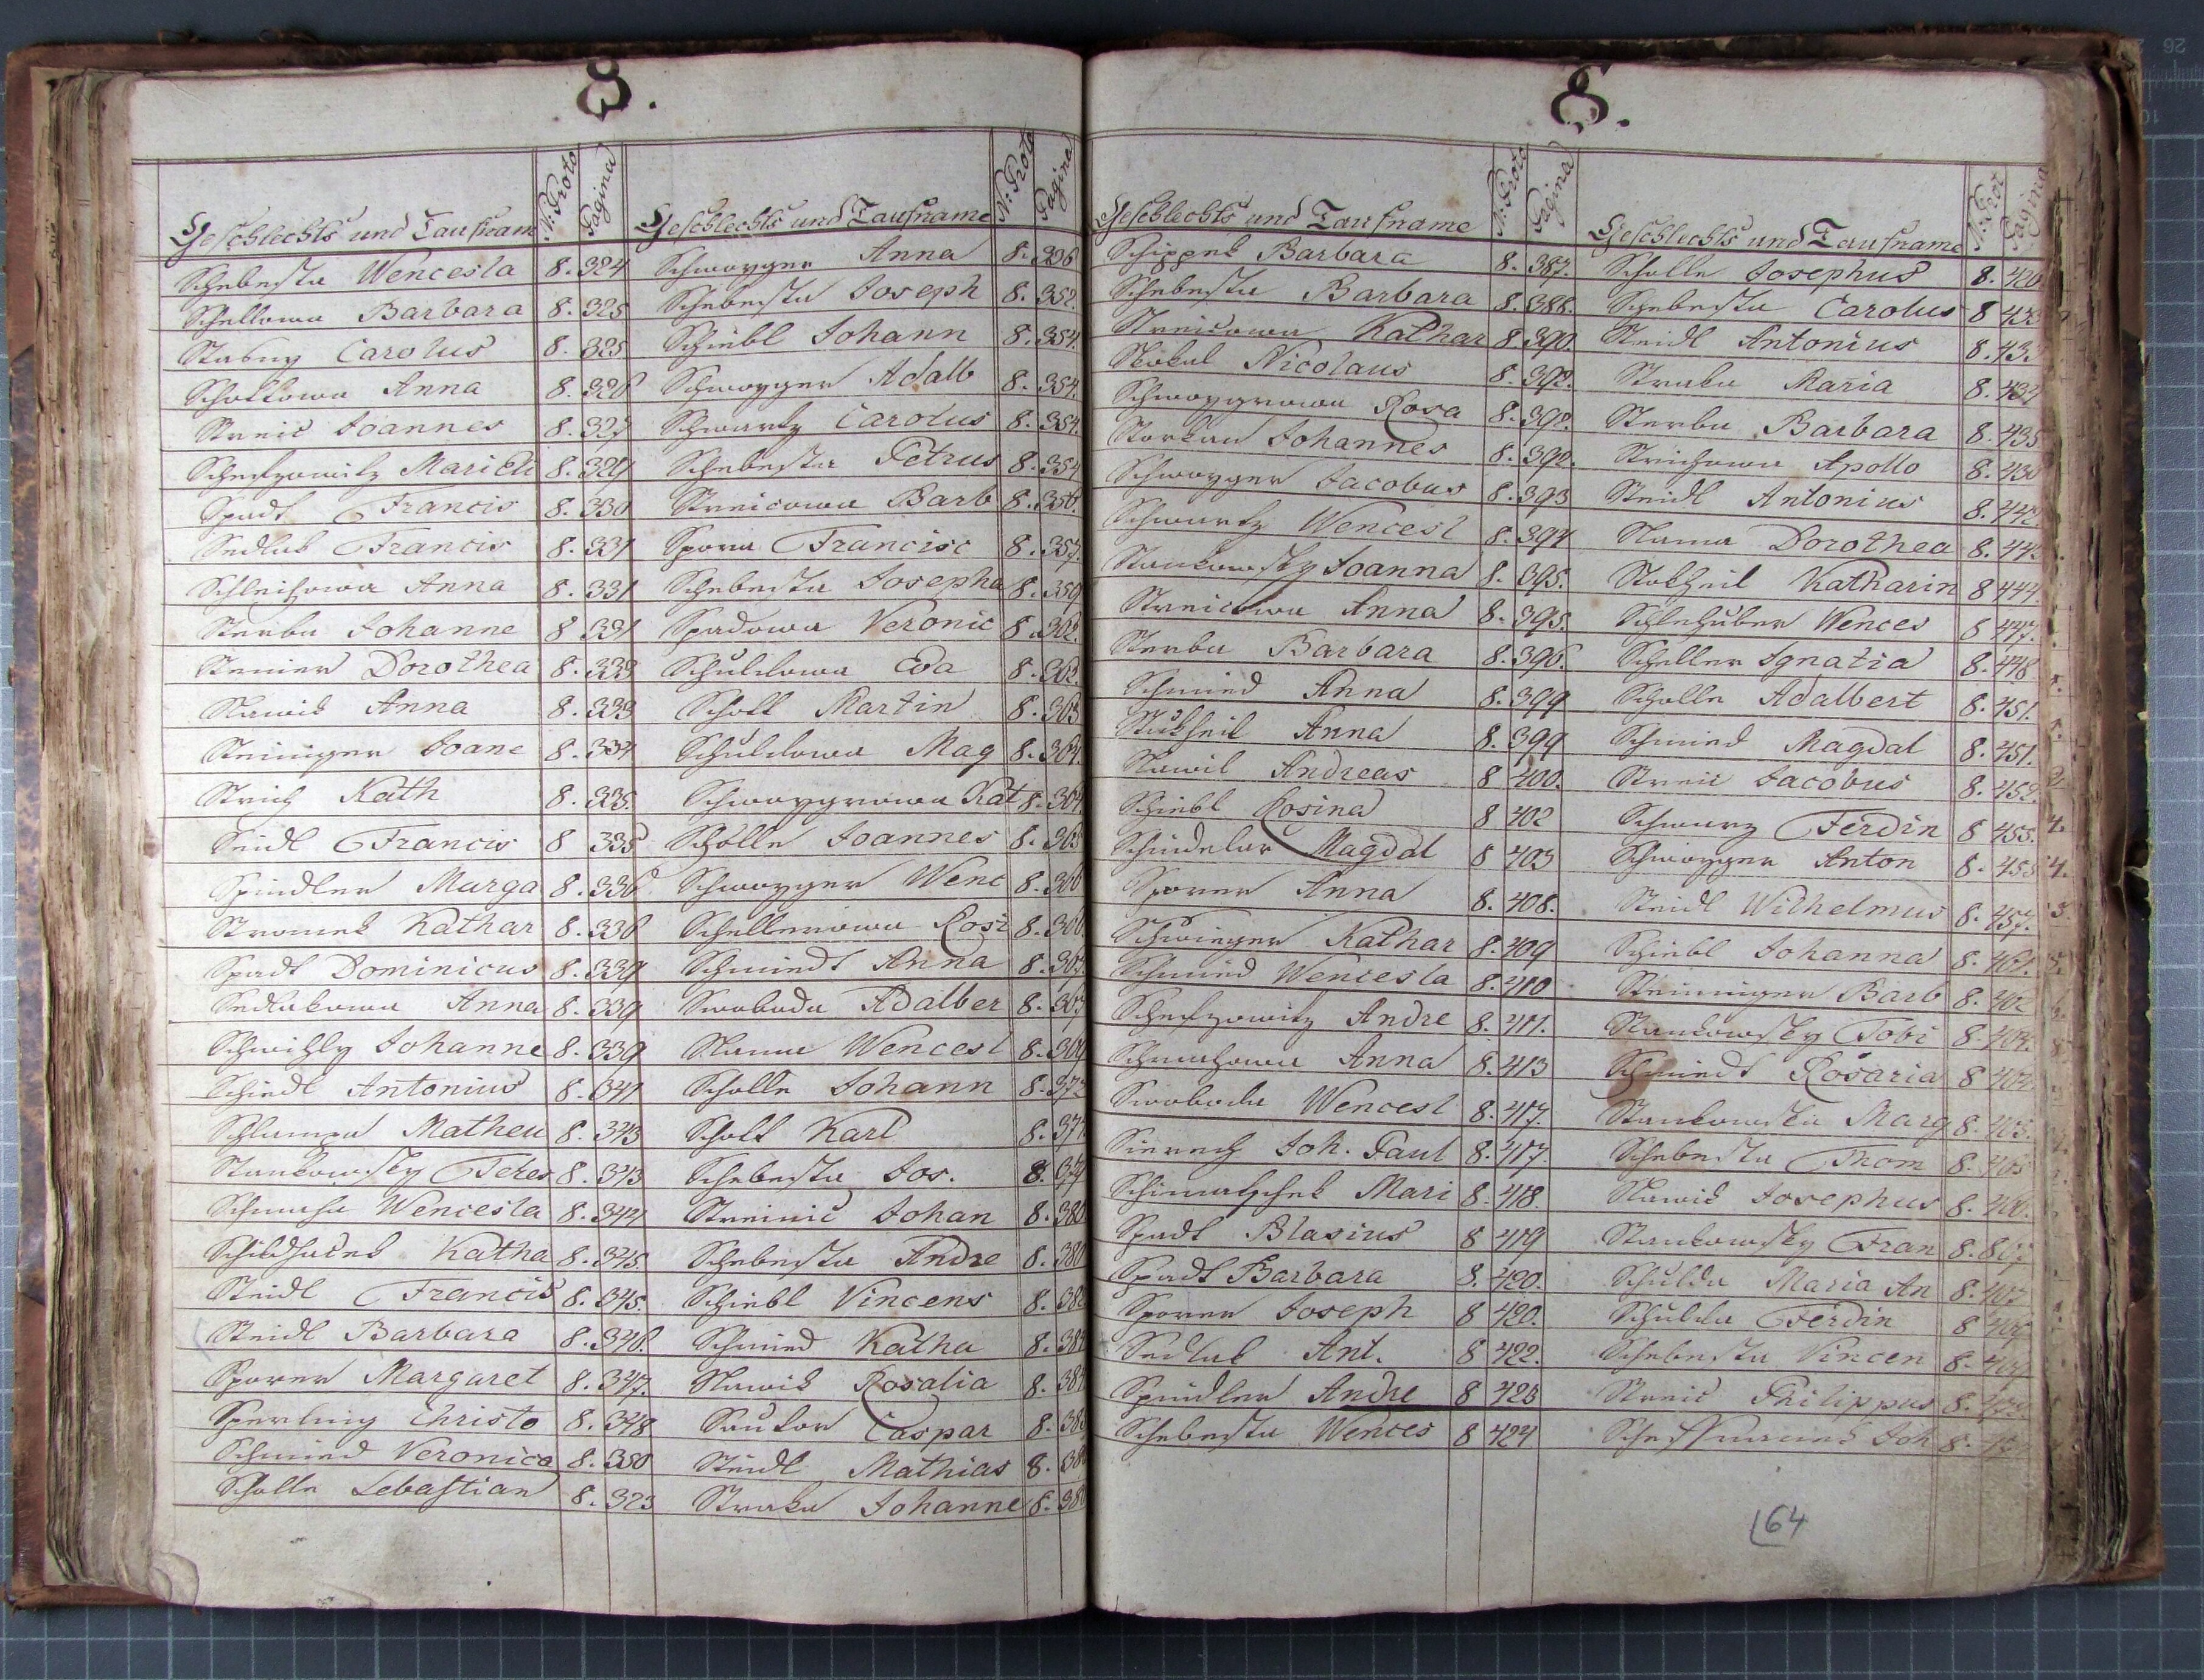 S.
Geschlechts und Taufnam N: Proto Pagina
Schebesta Wencesla 8. 324
Schellowa Barbara 8. 325
Stabny Carolus 8. 325
Schottowa Anna 8. 326
Streic Joannes 8. 327
Schefzowitz Mari Eli 8. 329
Spadt Francis 8. 330
Sedlak Francis 8. 331
Schleisowa Anna 8. 331
Sterba Johanne 8 331
Steiner Dorothea 8. 333
Slawik Anna 8. 333
Steininger Joane 8. 334
Strich Kath 8. 335.
Seidl Francis 8 335
Spindler Marga 8. 336
Stromek Kathar 8. 336
Spadt Dominicus 8. 339
Sedlakowa Anna 8. 339
Johanne 8. 339
Schiedl Antonius 8. 341
Schlumpa Matheu 8. 343
Stankowsky Teres 8. 343
Schmaha Wencesla 8. 344
Katha 8. 345.
Steidl Francis 8. 345.
Steidl Barbara 8. 346.
Sporer Margaret 8. 347.
Sperling Christo 8. 348
Schmied Veronica 8. 350
Scholle Sebastian 8. 323
Geschlechts und Taufname N: Proto Pagina
Schwayger Anna 8. 336
Schebesta Joseph 8. 352.
Schiebl Johann 8. 354.
Schwayger Adalb 8. 354.
Schwartz Carolus 8. 354.
Schebesta Petrus 8. 354
Streicowa Barb 8. 356.
Spora Francisc 8. 357.
Schebesta Josepha 8. 359
Spadowa Veronic 8. 362.
Schuldowa Eva 8. 362.
Schott Martin 8. 363
Schuldowa Mag 8. 364.
Schwaygrowa Kat 8. 364.
Scholle Joannes 8. 365
Schwayger Wenc 8. 366
Schellerowa Rosi 8. 366
Schmiedt Anna 8. 367.
Swoboda Adalber 8. 367
Slama Wencesl 8. 369
Scholle Johann 8. 373
Schott Karl 8. 37
Schebesta Jos. 8. 37
Streinic Johan 8. 380
Schebesta Andre 8. 380
Schiebl Vincens 8. 382
Schmied Katha 8. 38
Slawik Rosalia 8. 38
Caspar 8. 38
Steidl Mathias 8. 38
Straka Johanne 8. 38
S.
Geschlechts und Taufname N: Proto Pagina
Schippek Barbara 8. 387.
Schebesta Barbara 8. 388.
Streicowa Kathar 8. 390.
Skokal Nicolaus 8. 392.
Schwaygrowa Rosa 8. 392.
Storkan Johannes 8. 392.
Schwayger Jacobus 8. 393
Schwartz Wencesl 8. 394
Stankowsky Joanna 8. 395.
Streicowa Anna 8. 395.
Sterba Barbara 8. 396.
Schmied Anna 8. 399
Stukheil Anna 8. 399
Slawik Andreas 8 400.
Schiebl Rosina 8 402
Schindelar Magdal 8 403
Sporer Anna 8. 408.
Schwieger Kathar 8. 409
Schmied Wencesla 8. 410
Schefzowitz Andre 8. 411.
Schmahowa Anna 8. 413
Swoboda Wencesl 8. 417.
Joh. Paul 8. 417.
Schimatschek Mari 8. 418.
Spadt Blasius 8 419
Spadt Barbara 8. 420.
Sporer Joseph 8 420.
Sedlak Ant. 8 422.
Spindler Andre 8 423
Schebesta Wences 8 424
Geschlechts und Taufname N: Prot Pagina
Scholle Josephus 8. 426
Schebesta Carolus 8 433
Steidl Antonius 8. 433
Straka Maria 8. 434
Sterba Barbara 8. 435
Strichowa Apollo 8. 436
Steidl Antonius 8. 442.
Slama Dorothea 8. 44
Stokheil Katharin 8 444.
Schlehuber Wences 8 447.
Scheller Ignatia 8. 448
Scholle Adalbert 8. 451.
Schmied Magdal 8. 451.
Streic Jacobus 8. 452.
Schwarz Ferdin 8 455.
Schwayger Anton 8. 455
Steidl Wilhelmus 8. 457.
Schiebl Johanna 8. 461.
Steininger Barb 8. 462
Stankowsky Tobi 8. 464.
Schmiedt Rosaria 8 464.
Stankowska Marg 8. 465.
Schebesta Thom 8. 465
Slawik Josephus 8. 466.
Stankowsky Fran 8. 867
Schulda Maria An 8. 467
Schulda Ferdin 8 469
Schebesta Vincen 8. 469
Streic Philippus 8. 472.
Joh 8. 47
64